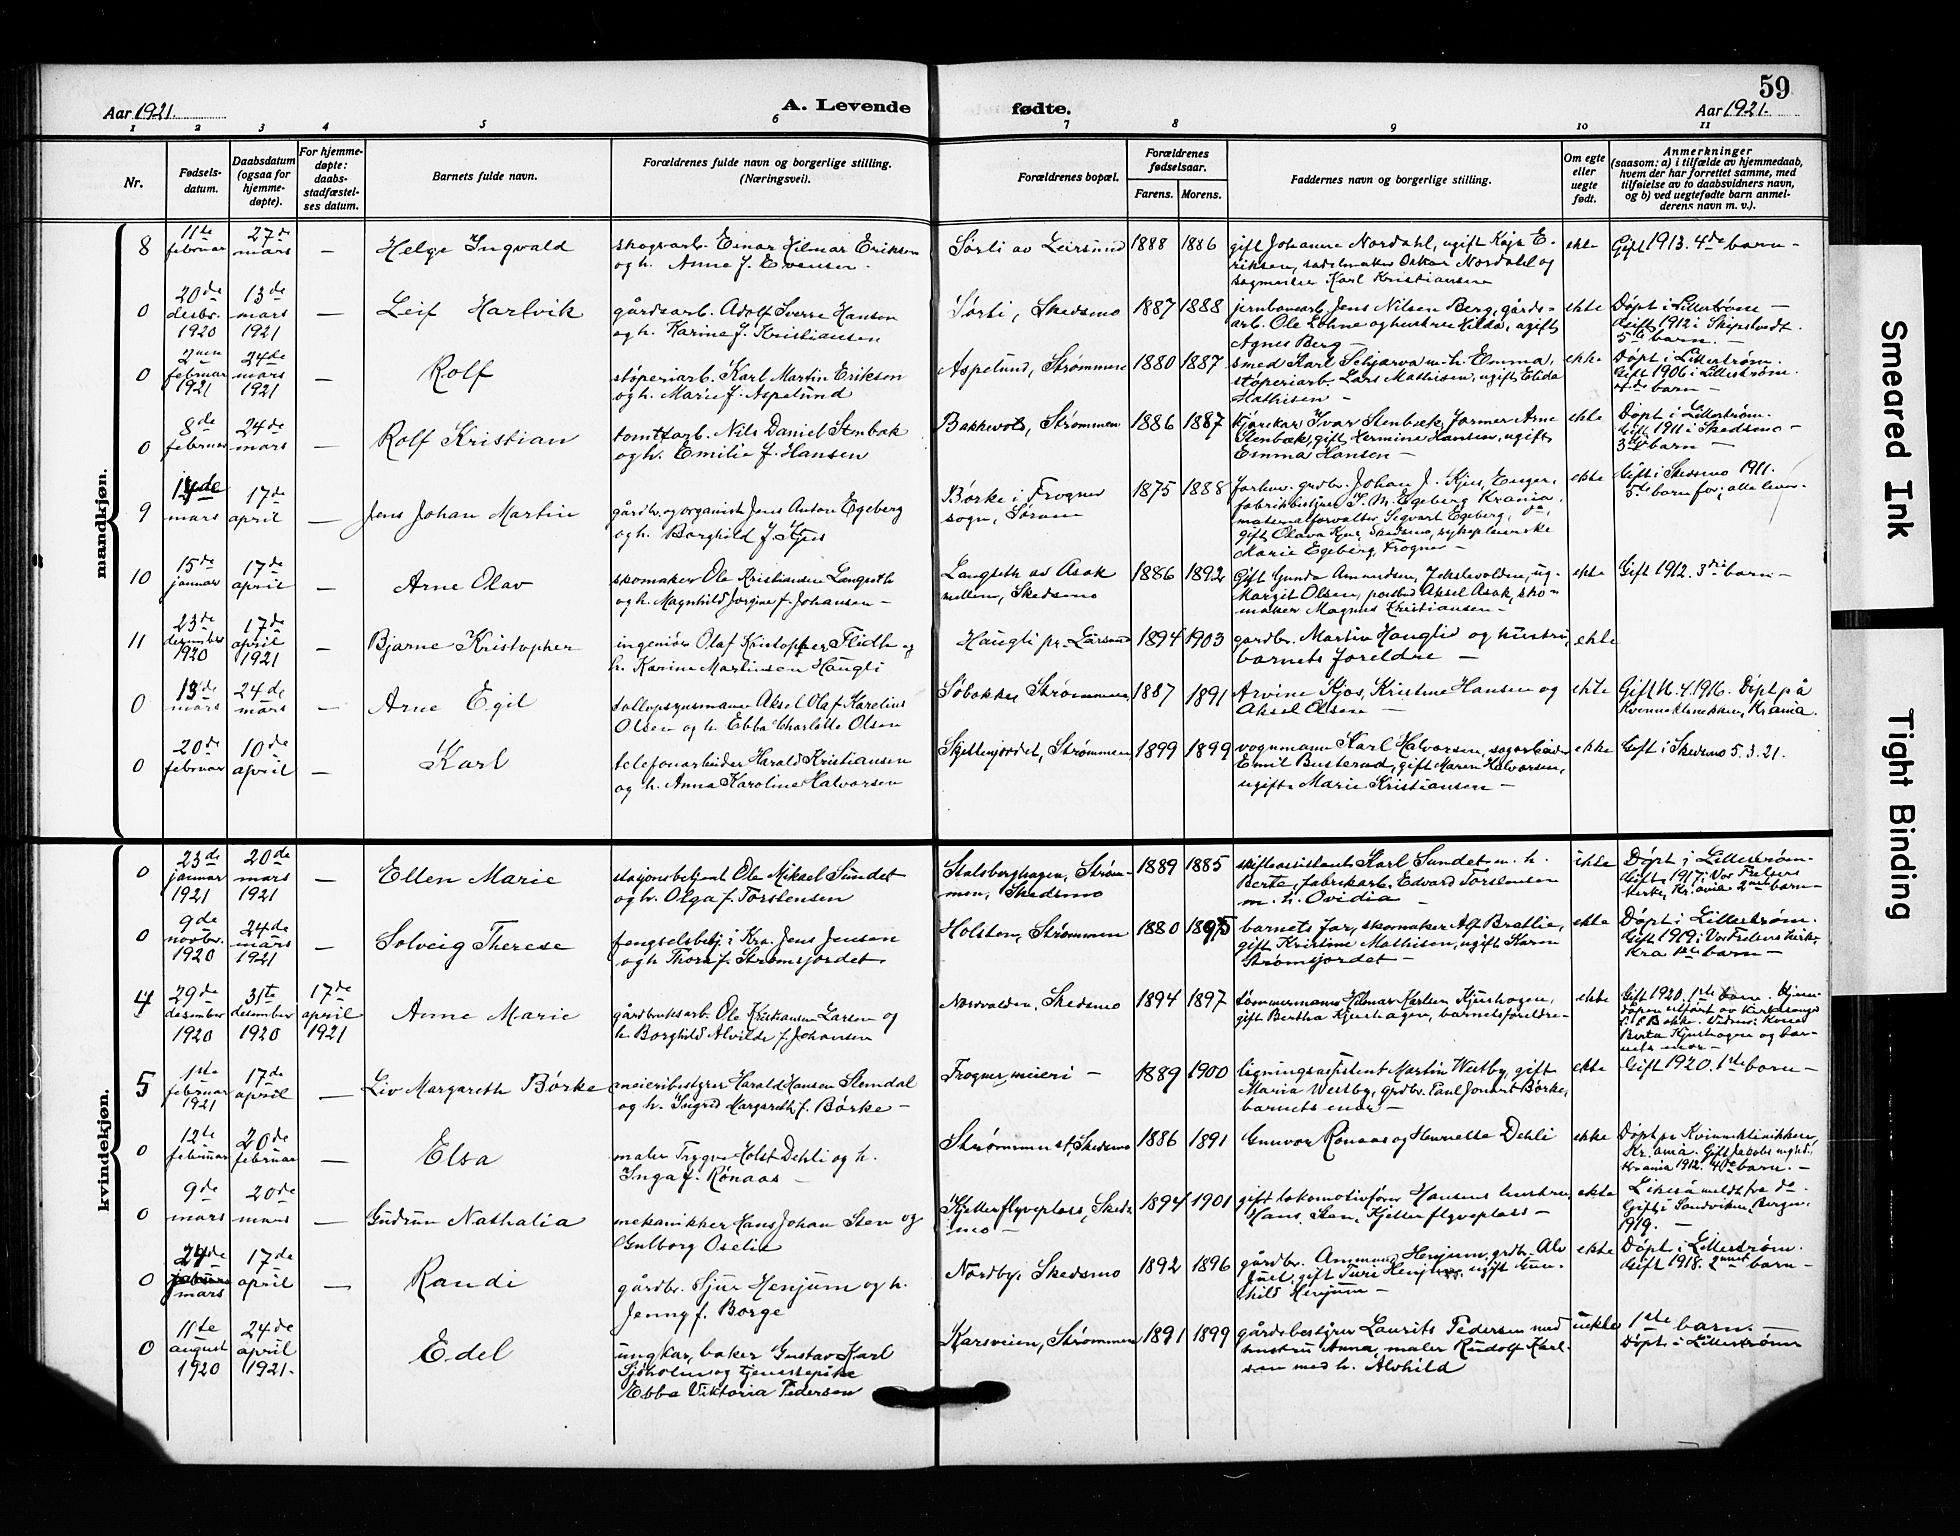 59
Aar 1921.
A. Levende
fødte.
Aar 1921.
1 2 3 4 5 6 7 8 9 10 11
Nr.
Fødsels-
datum.
Daabsdatum
(ogsaa for
hjemme-
døpte).
For hjemme-
døpte:
daabs-
stadfæstel-
ses datum.
Barnets fulde navn.
Forældrenes fulde navn og borgerlige stilling.
(Næringsvei).
Forældrenes bopæl.
Forældrenes
fødselsaar.
Farens. Morens.
Faddernes navn og borgerlige stilling.
Om egte
eller
uegte
født.
Anmerkninger
(saasom: a) i tilfælde av hjemmedaab,
hvem der har forrettet samme, med
tilføielse av to daabsvidners navn,
og b) ved uegtefødte barn anmel-
derens navn m. v.).
mandkjøn.
8
11te
februar
27de
mars
—
Helge Ingvald
skogsarb. Einar Hilmar Eriksen
og h. Anne f. Evensen.
Sørli av Leirsund
1888 1886
gift Johanne Nordahl, ugift Kaja E-
riksen, sadelmaker Oskar Nordahl og
sagmester Karl Kristiansen
ekte
Gift 1913. 4de barn -
0
20de
desbr.
1920
13de
mars
1921
—
Leif Hartvik
gårdsarb. Adolf Sverre Hansen
og h. Karine f. Kristiansen
Sørli, Skedsmo
1887 1888
jernbanearb. Jens Nilsen Berg, gårds-
arb. Ole Lohne og hustru Hilda, ugift
Agnes Berg —
ekte
Døpt i Lillestrøm —
Gift 1912 i Skiptvedt.
5te barn. —
0
2nen
februar
1921
24de
mars
1921
—
Rolf
støperiarb. Karl Martin Eriksen
og h. Marie f. Aspelund
Aspelund, Strømmen
1880 1887
smed Karl Schjarva m. h. Emma,
støperiarb. Lars Mathisen, ugift Elida
Mathisen —
ekte
Døpt i Lillestrøm.
Gift 1906 i Lillestrøm.
barn —
0
8de
februar
24de
mars
—
Rolf Kristian
tomtearb. Nils Daniel Stenbæk
og h. Emilie f. Hansen
Strømmen
1886 1887
kjørekar Ivar Stenbæk, former Arne
Stenbæk, gift Hermine Hansen, ugift
Emma Hansen —
ekte
Døpt i Lillestrøm.
Gift 1911 i Skedsmo —
3die barn —
9
14de
mars
17de
april
—
Jens Johan Martin
gårdbr. og organist Jens Anton Egeberg
og h. Borghild f. Kjus
Børke i Frogner
sogn, Sørum
1875 1888
forhenv. grdbr. Johan J. Kjus, Enger,
fabrikbestyrer I. M. Egeberg Krania,
materialforvalter Sigvart Egeberg, do,
gift Olava Kjus Skedsmo, sykepleierske
Marie Egeberg, Frogner —
ekte
Gift i Skedsmo 1911.
5te barn før; alle lever.
10
15de
januar
17de
april
—
Arne Olav
skomaker Ole Kristiansen Langseth
og h. Magnhild Jorgine f. Johansen —
Langseth av Asak
mellem, Skedsmo
1886 1892
Gift Gunda Amundsen, Jekslevolden, ug-
Margit Olsen, postbud Aksel Asak, sko-
maker Magnus Kristiansen —
ekte
Gift 1912. 3die barn —
11
23de
desember
1920
17de
april
1921
—
Bjarne Kristopher
ingeniør Olaf Kristopher Flidth og
h. Karine Martinsen Haugli
Haugli pr. Lersund
1894 1903
gardbr. Martin Hauglid og hustru,
barnets foreldre —
ekte
0
13de
mars
24de
mars
—
Arne Egil
tollopsynsmann Aksel Olaf Karelius
Olsen og h. Ebba Charlotte Olsen
Søbakken Strømmen
1887 1891
Arvine Kjos, Kristine Hansen og
Aksel Olsen —
ekte
Gift 16.4.1916. Døpt på
Kvinneklinikken, Krania.
0
20de
februar
10de
april
—
Karl
telefonarbeider Harald Kristiansen
og h. Anna Karoline Halvorsen
Skjettenjordet, Strømmen
1899 1899
vognmann Karl Halvorsen, sagarbeider
Emil Busterud, gift Maren Halvorsen,
ugift Marie Kristiansen —
ekte
Gift i Skedsmo 5.3.21.
kvindekjøn.
0
23de
januar
1921
20de
mars
1921
—
Ellen Marie
stasjonsbetjent Ole Mikael Sundet
og h. Olga f. Torstensen
Stalsberghagen, Strøm-
men, Skedsmo
1889 1885
skifteassistent Karl Sundet m. h.
Berte, fabrikarb. Edvard Torstensen
m. h. Ovidia —
ekte
Døpt i Lillestrøm-
Gift 1917 i Vor Frelsers
kirke, Kr.ania 2net barn —
0
9de
novbr.
1920
24de
mars
1921
—
Solveig Therese
fengselsbetj. i Kra. Jens Jensen
og h. Thora f. Strømsjordet.
Holsten, Strømmen
1880 1895
barnets far, skomaker Alf Brattlie,
gift Kristine Mathisen, ugift Karen
Strømsjordet —
ekte
Døpt i Lillestrøm.
Gift 1919 i Vor Frelsers kirke,
Kra 1ste barn —
4
29de
desember
1920
31te
desember
1920
17de
april
1921
Anne Marie
gårdbruksarb. Ole Kristiansen Larsen og
h. Borghild Alvilde f. Johansen
Nordvolden, Skedsmo
1894 1897
tømmermann Hilmar Karlsen Kjushagen,
gift Bertha Kjushagen, barnets foreldre-
ekte
Gift 1920. 1ste barn. Hjemme-
døpen utført av kirkesanger
Bakke. Vidner: Kona
Berta Kjushagen og bar-
nets mor —
5
1ste
februar
1921
17de
april
—
Liv Margareth Børke
meieribestyrer Harald Hansen Stemdal
og h. Ingrid Margareth f. Børke —
Frogner meieri —
1889 1900
ligningsassistent Martin Westby, gift
Maria Westby, grdbr. Paul Børke,
barnets mor —
ekte
Gift 1920. 1ste barn —
0
12te
februar
20de
februar
—
Elsa
maler Trygve Holst Dehli og h.
Inga f. Rønaas —
Strømmen st, Skedsmo
1886 1891
Gunvor Rønaas og Henriette Dehli
ekte
Døpt på Kvinneklinikken,
Kr.ania. Gift Jakobs menighet,
Krania 1912. 4de barn. —
0
9de
mars
20de
mars
—
Gudrun Nathalia
mekanikker Hans Johan Sten og
Gulborg Oselie
Kjeller flyveplass, Skeds-
mo —
1894 1901
gift lokomotivfører Hansens hustru,
Hans Sten, Kjeller flyveplass —
ekte
Likeså meldt fra do.
Gift i Sandviken, Bergen,
1919. —
0
24de
mars
17de
april
—
Randi
gårdbr. Sjur Henjum og h.
Jenny f. Borge
Nordby, Skedsmo
1892 1896
gårdbr. Ammund Henjum, grdbr. Alv
Juel, gift Turi Henjum, ugift Gun-
hild Henjum —
ekte
Døpt i Lillestrøm.
Gift 1918. 2net barn —
0
11te
august
1920
24de
april
1921.
Edel
ungkar, baker Gustav Karl
Sjøholm og tjenestepike
Ebba Viktoria Pedersen
Karsveien, Strømmen
1891 1899
gårdsbestyrer Laurits Pedersen med
hustru Anna, maler Rudolf Karl-
sen med h. Alvhild
uekte
1ste barn. —
Døpt i Lillestrøm
Smeared Ink
Tight Binding